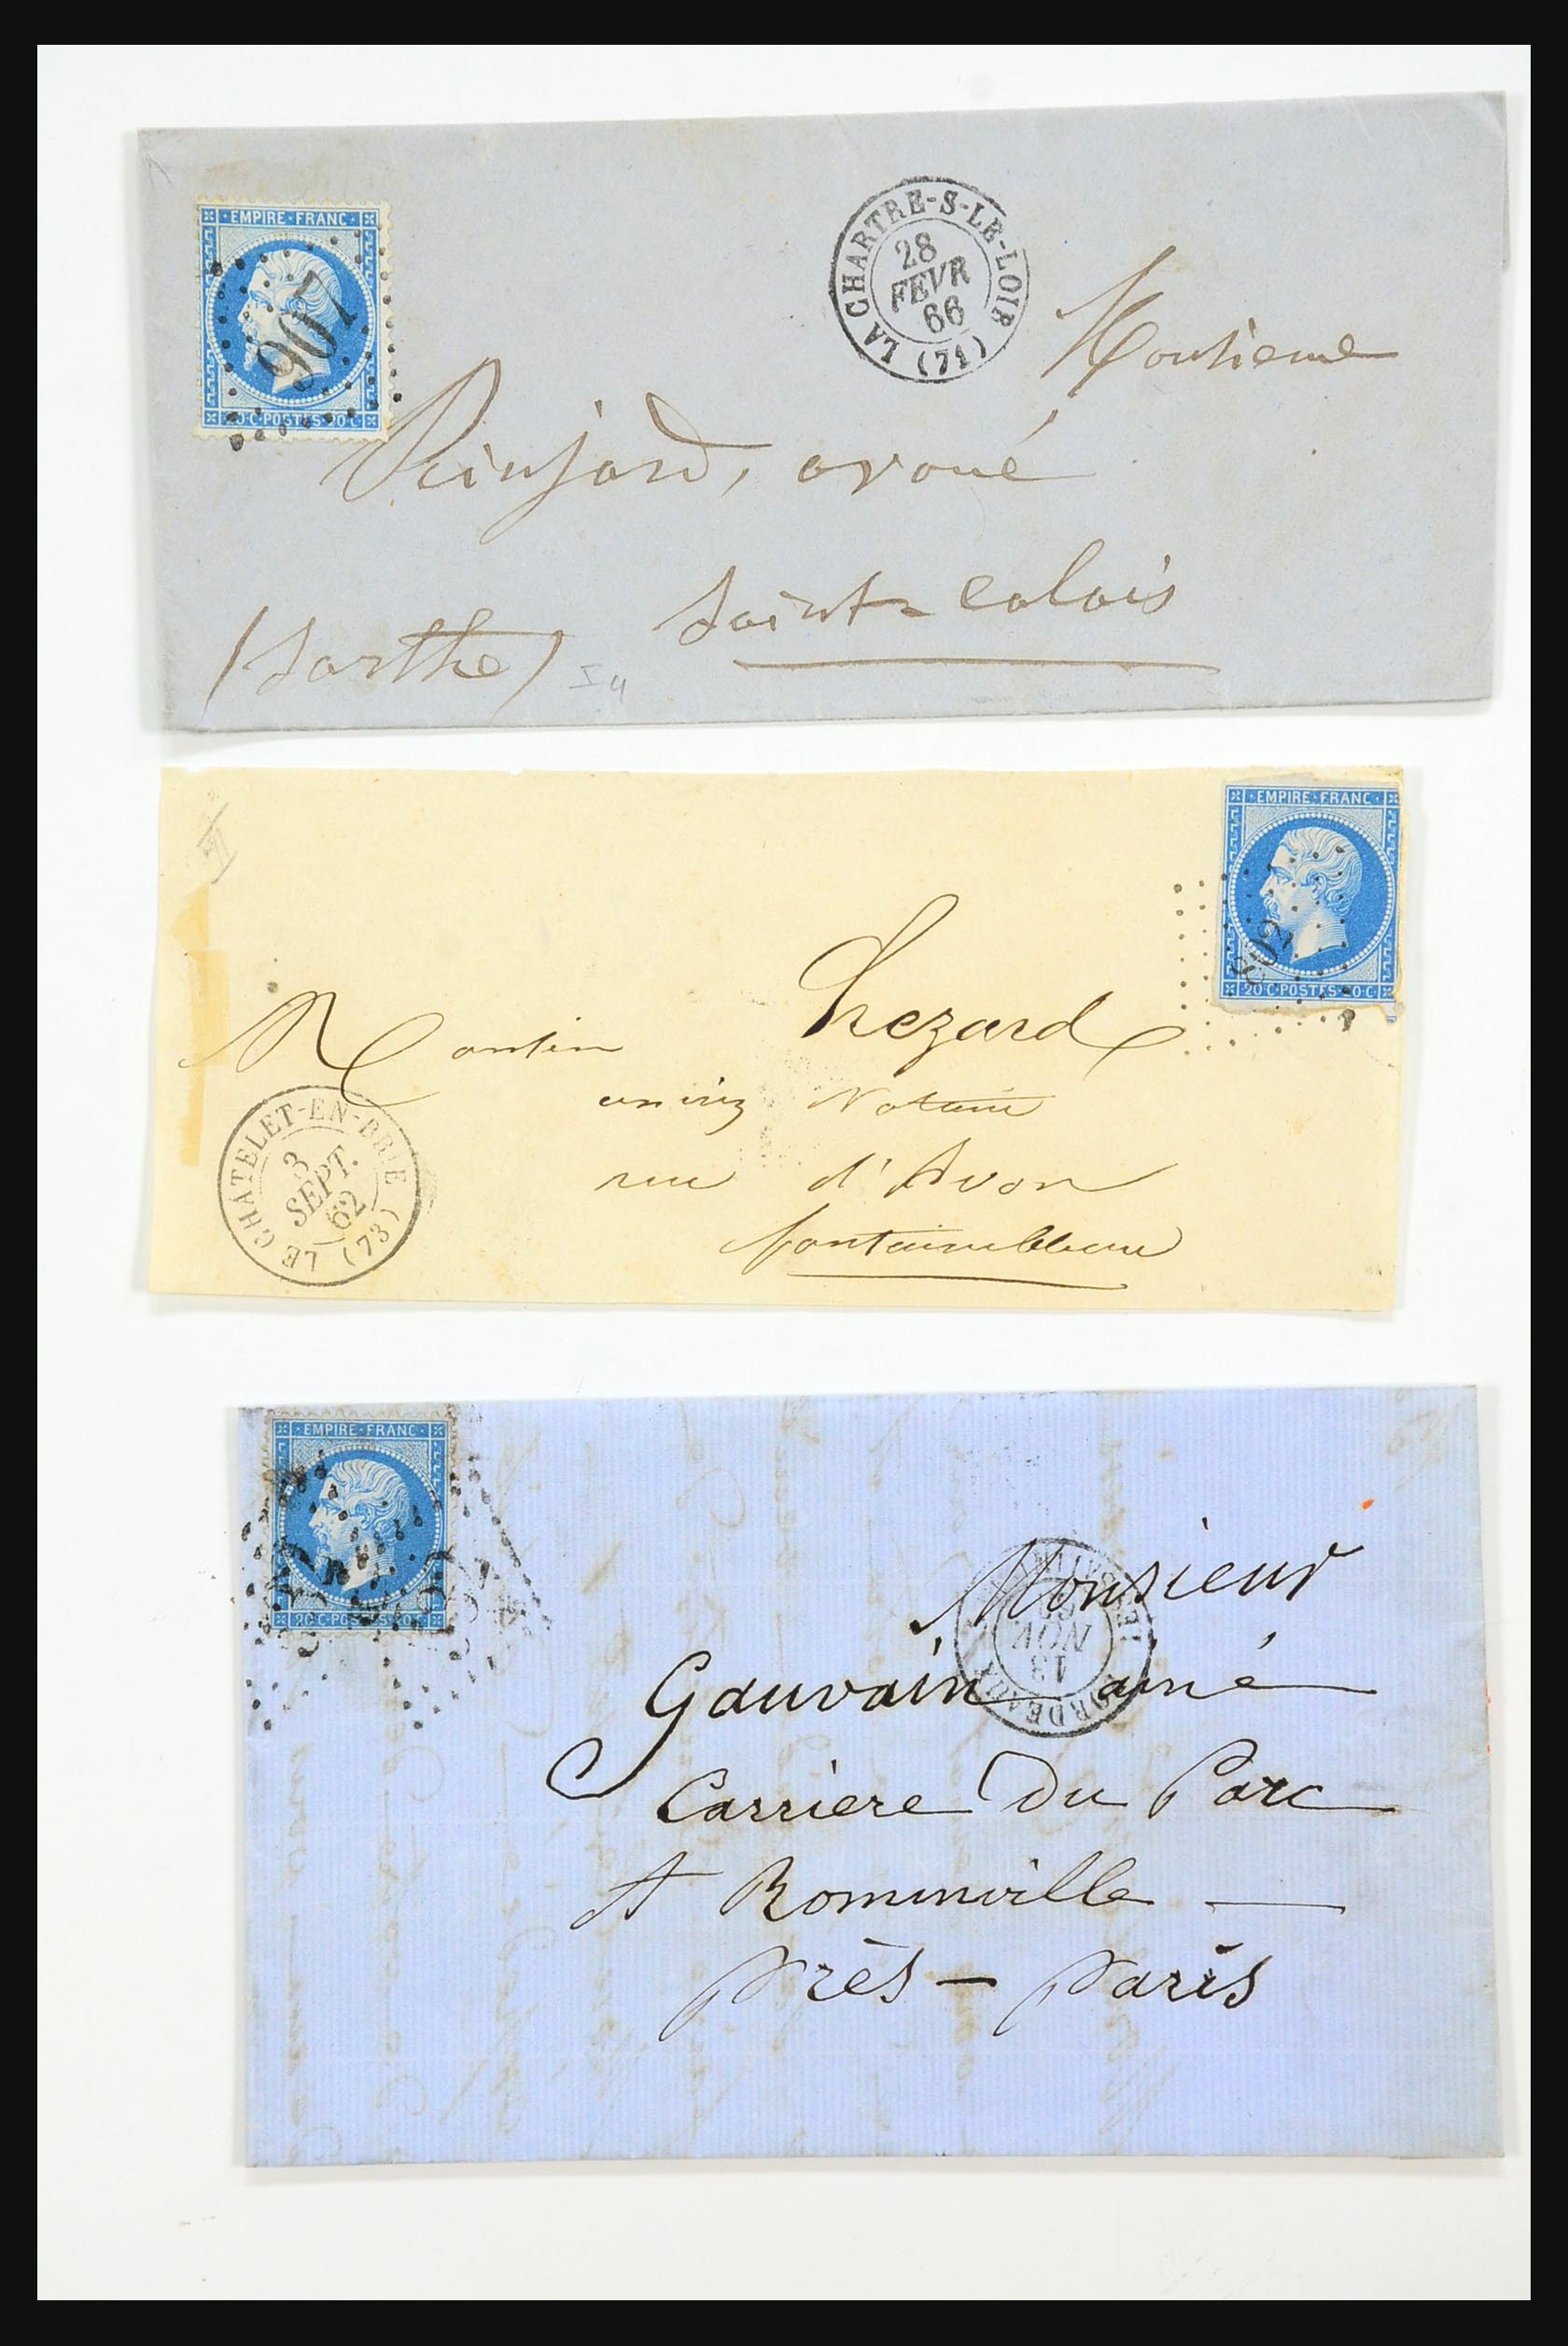 EMPIRE·FRANC·
907
20·C·POSTES·20·C
LA CHARTRE-S-LE-LOIR
28
FEVR
66
(71)
Monsieur
avoué
Saint-Calais
(Sarthe)
EMPIRE·FRANC·
20·C·POSTES·20·C
Lhezard
ancien Notaire
rue d'Avon
fontainebleau
LE CHATELET-EN-BRIE
3
SEPT.
62
(73)
EMPIRE·FRANC·
20·C·POSTES·20·C
13
NOV
BORDEAUX
Monsieur
Gauvain ainé
Carriere Du Parc
A Rominville
près - paris